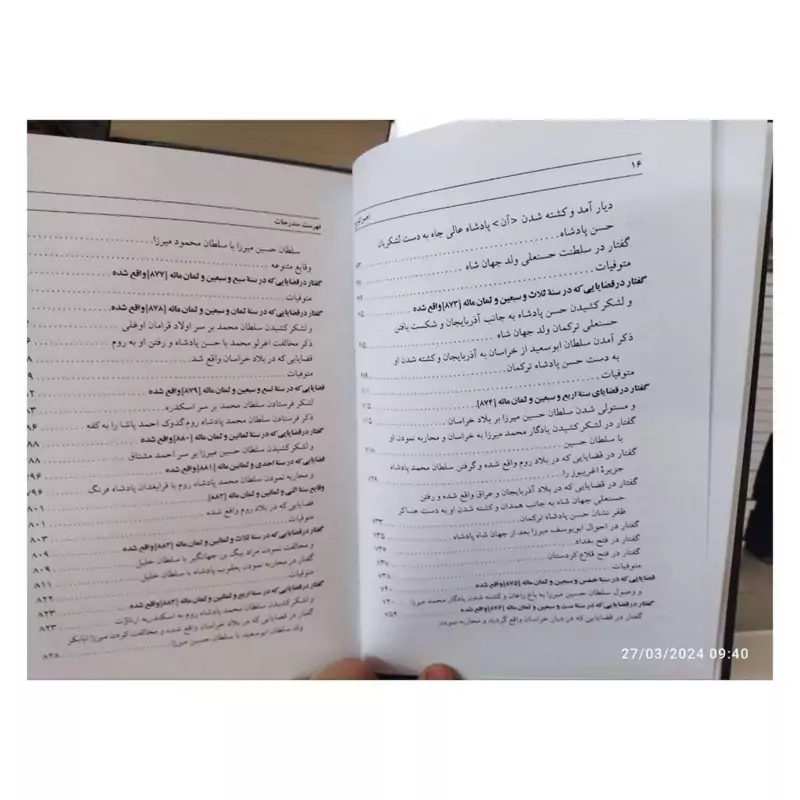 ۱۶
دیار آمد و کشته شدن <آن> پادشاه عالی جاه به دست لشکریان
حسن پادشاه
گفتار در سلطنت حسنعلی ولد جهان شاه
متوفیات
گفتار در قضایایی که در سنهٔ ثلاث و سبعین و ثمان مائه [۸۷۳] واقع شده
و لشکر کشیدن حسن پادشاه به جانب آذربایجان و شکست یافتن
حسنعلی ترکمان ولد جهان شاه
ذکر آمدن سلطان ابوسعید از خراسان به آذربایجان و کشته شدن او
به دست حسن پادشاه ترکمان
متوفیات
گفتار در قضایای سنهٔ اربع و سبعین و ثمان مائه [۸۷۴]
و مستولی شدن سلطان حسین میرزا بر بلاد خراسان
گفتار در لشکر کشیدن یادگار محمد میرزا به خراسان و محاربه نمودن او
با سلطان حسین
گفتار در قضایایی که در بلاد روم واقع شده و گرفتن سلطان محمد پادشاه
جزیرهٔ اغریبوز را
گفتار در قضایایی که در بلاد آذربایجان و عراق واقع شده و رفتن
حسنعلی جهان شاه به جانب همدان و کشته شدن او به دست عساکر
ظفر نشان حسن پادشاه ترکمان
گفتار در احوال ابویوسف میرزا بعد از جهان شاه پادشاه
گفتار در فتح بغداد
گفتار در فتح قلاع کردستان
متوفیات
قضایایی که در سنهٔ خمس و سبعین و ثمان مائه [۸۷۵] واقع شده
و وصول سلطان حسین میرزا به باغ زاغان و کشته شدن یادگار محمد میرزا
گفتار در قضایایی که در سنهٔ ست و سبعین و ثمان مائه [۸۷۶] واقع شده
گفتار در قضایایی که در دیار خراسان واقع گردید و محاربه نمودن
فهرست مندرجات
سلطان حسین میرزا با سلطان محمود میرزا
وقایع متنوعه
گفتار در قضایایی که در سنهٔ سبع و سبعین و ثمان مائه [۸۷۷] واقع شده
متوفیات
گفتار در قضایایی که در سنهٔ ثمان و سبعین و ثمان مائه [۸۷۸] واقع شده
و لشکر کشیدن سلطان محمد بر سر اولاد قرامان اوغلی
ذکر مخالفت اغرلو محمد با حسن پادشاه و رفتن او به روم
قضایایی که در بلاد خراسان واقع شد
متوفیات
قضایایی که در سنهٔ تسع و سبعین و ثمان مائه [۸۷۹] واقع شده
لشکر فرستادن سلطان محمد بر سر اسکندره
ذکر فرستادن سلطان محمد پادشاه روم گدوک احمد پاشا را به کفه
گفتار در قضایایی که در سنهٔ ثمانین و ثمان مائه [۸۸۰] واقع شده
و لشکر کشیدن سلطان محمد بر سر احمد مشتاق
قضایایی که در سنهٔ احدی و ثمانین و ثمان مائه [۸۸۱] واقع شده
و محاربه نمودن سلطان محمد پادشاه روم با قرابغدان پادشاه فرنگ ۷۹۶
وقایع سنهٔ اثنی و ثمانین و ثمان مائه [۸۸۲] ۸۰۱
قضایایی که در بلاد روم واقع شده ۸۰۱
متوفیات ۸۰۳
گفتار در قضایایی که در سنهٔ ثلاث و ثمانین و ثمان مائه [۸۸۳] واقع شده ۸۰۹
و مخالفت نمودن مراد بیگ بن جهانگیر با سلطان خلیل ۸۰۹
گفتار در محاربه نمودن یعقوب پادشاه با سلطان خلیل ۸۱۱
متوفیات ۸۲۲
گفتار در قضایایی که در سنهٔ اربع و ثمانین و ثمان مائه [۸۸۴] واقع شده ۸۲۳
و لشکر کشیدن سلطان محمد پادشاه روم به اسکندریه ارناؤت ۸۲۳
گفتار در قضایایی که در بلاد خراسان واقع شده و مخالفت کردن میرزا ابابکر
ولد سلطان ابوسعید با سلطان حسین میرزا ۸۲۸
27/03/2024 09:40